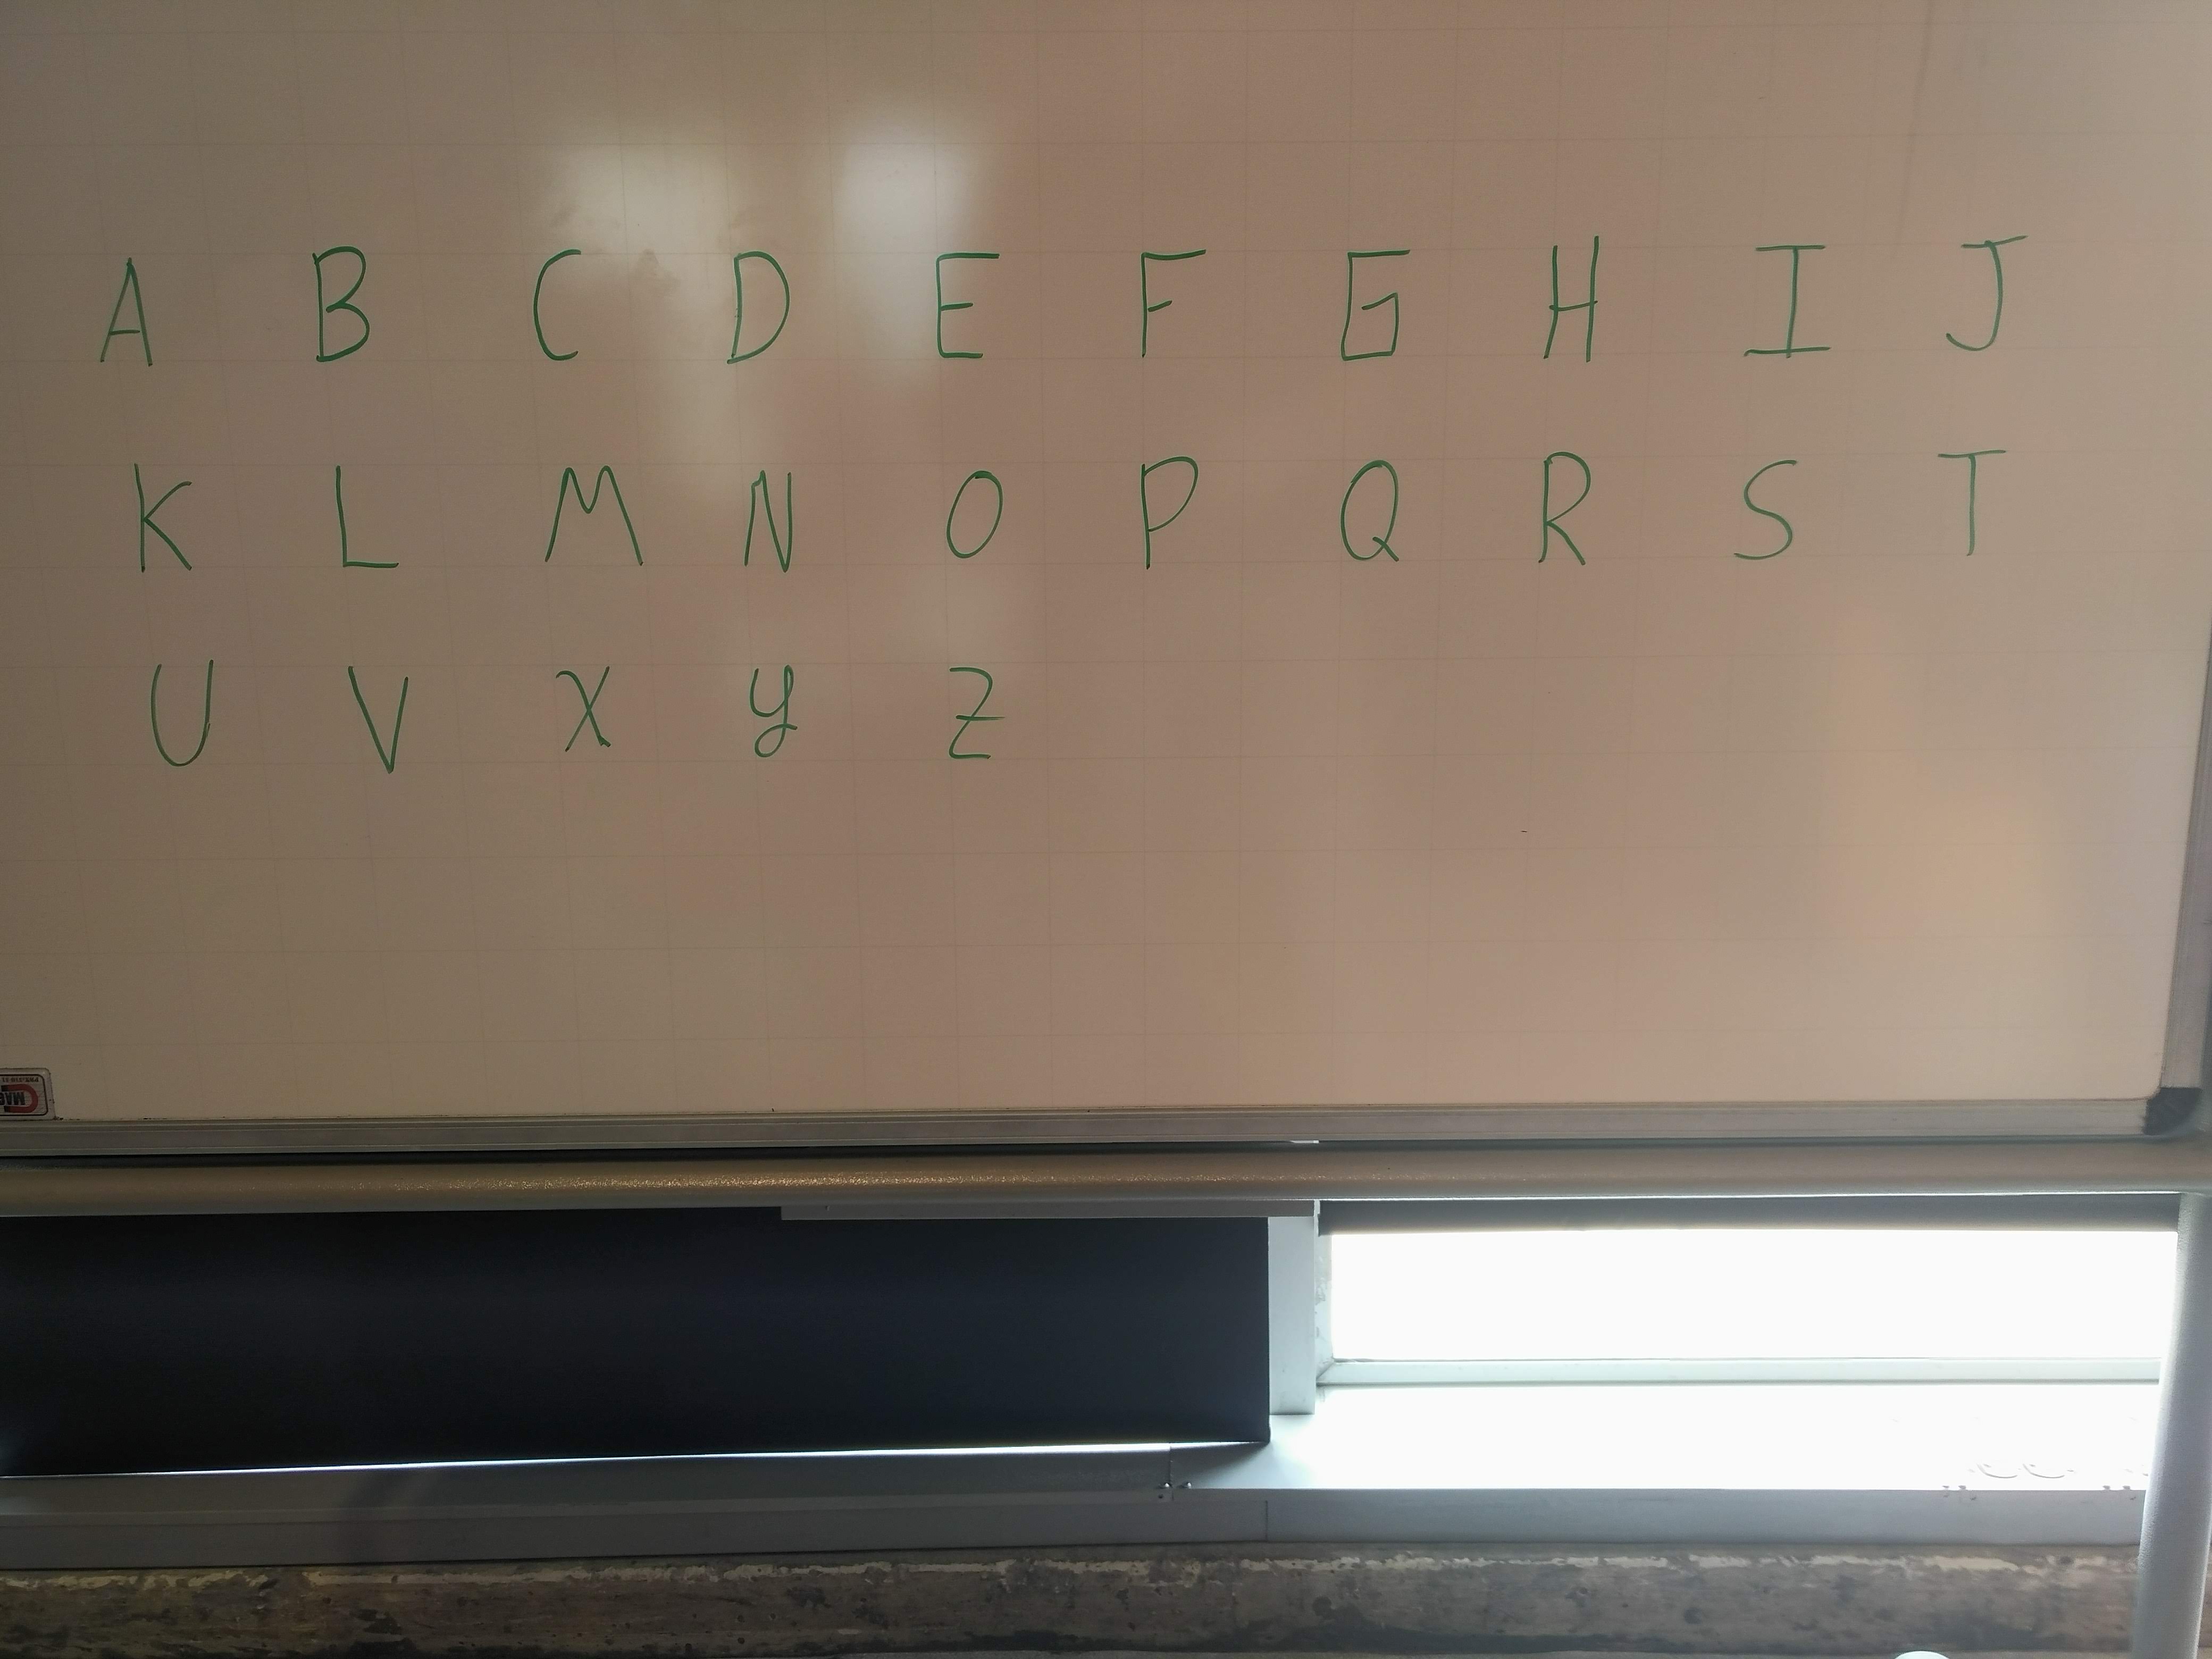 A B C D E F G H I J
K L M N O P Q R S T
U V X Y Z